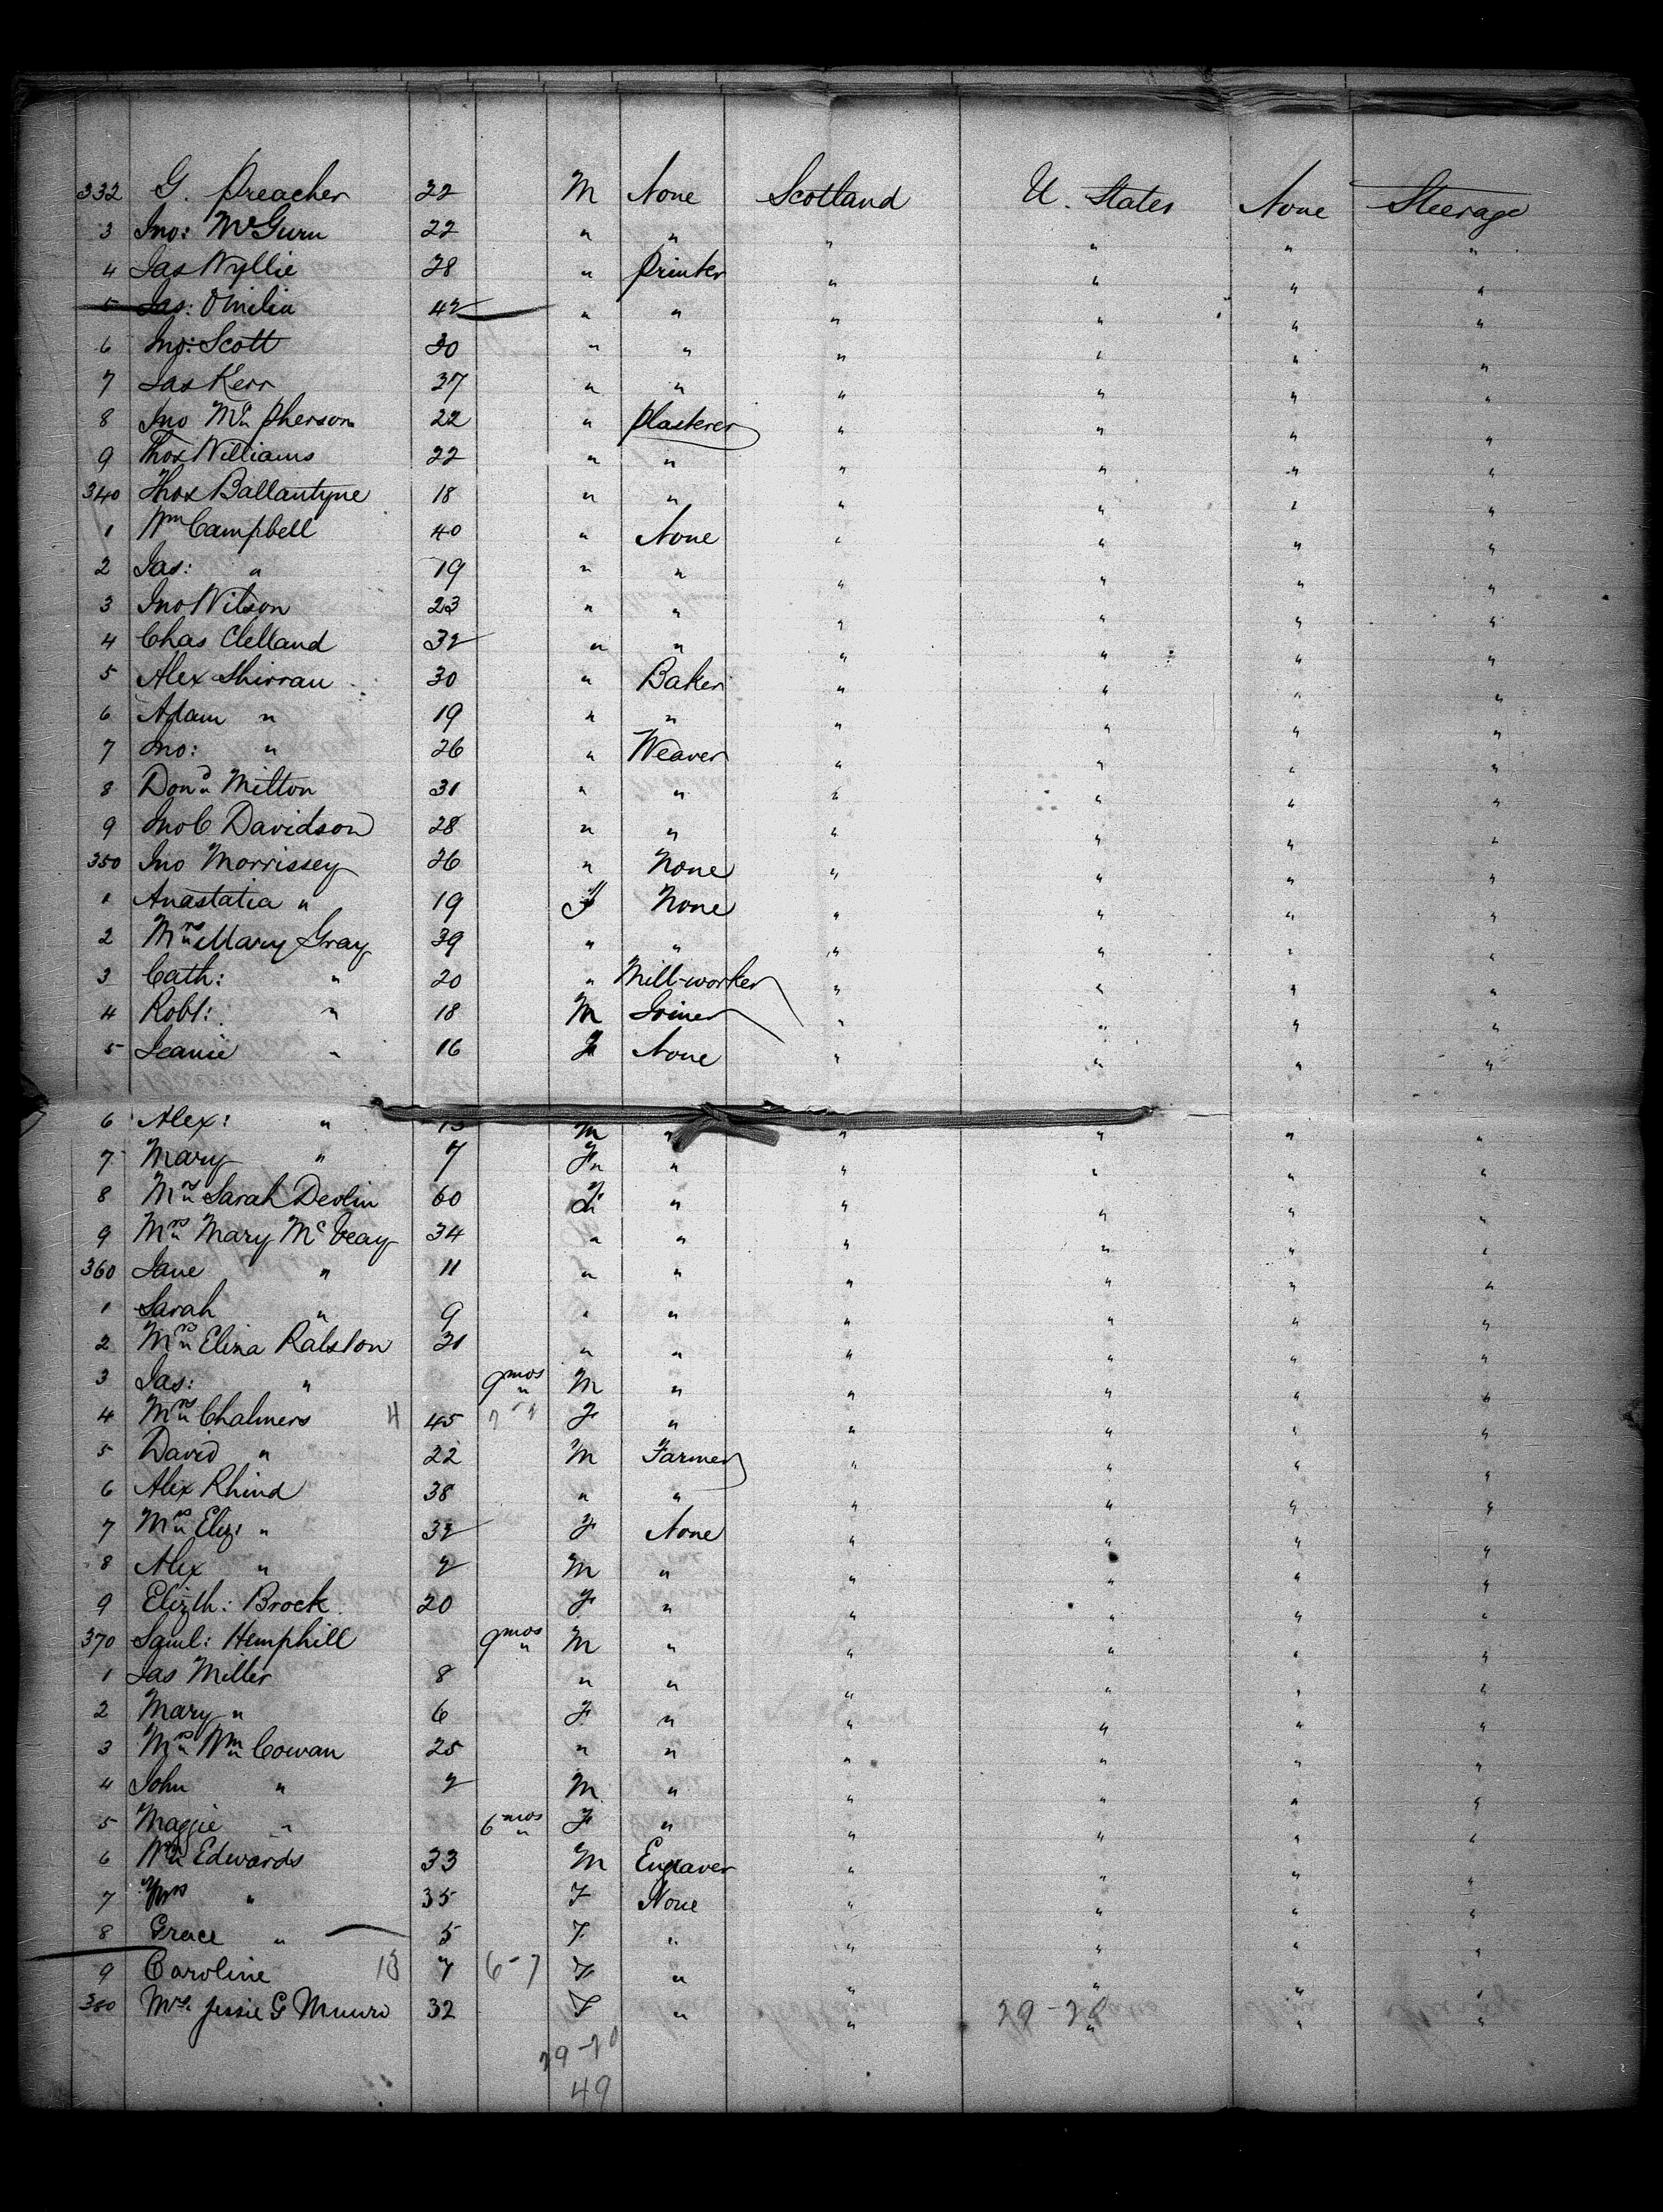 332 G. Preacher 22 M None Scotland U. States None Steerage
3 Jno: McGurn 22 " " " " " "
4 Jas Wyllie 28 " Printer " " " "
5 Jas: 42 " " " " " "
6 Jno: Scott 30 " " " " " "
7 Jas Kerr 37 " " " " " "
8 Jno Mc Pherson 22 " Plasterer " " " "
9 Thos Williams 22 " " " " " "
340 Thos Ballantyne 18 " " " " " "
1 Wm Campbell 40 " None " " " "
2 Jas: " 19 " " " " " "
3 Jno Wilson 23 " " " " " "
4 Chas Clelland 32 " " " " " "
5 Alex Shirran 30 " Baker " " " "
6 Adam " 19 " " " " " "
7 Jno: " 26 " Weaver " " " "
8 Dond Milton 31 " " " " " "
9 Jno C Davidson 28 " " " " " "
350 Jno Morrissey 26 " None " " " "
1 Anastatia " 19 F None " " " "
2 Mrs Mary Gray 39 " " " " " "
3 Cath: " 20 " Mill-worker " " " "
4 Robt: " 18 M Joiner " " " "
5 Jeanie " 16 F None " " " "
6 Alex: " 13 M " " " " "
7 Mary " 7 F " " " " "
8 Mrs Sarah Devlin 60 F " " " " "
9 Mrs Mary McVeay 34 " " " " " "
360 Jane " 11 " " " " " "
1 Sarah " 9 " " " " " "
2 Mrs Eliza Ralston 31 " " " " " "
3 Jas: " 9 mos M " " " " "
4 Mrs Chalmers 45 F " " " " "
5 David " 22 M Farmer " " " "
6 Alex Rhind 38 " " " " " "
7 Mrs Eliz: " 32 F None " " " "
8 Alex " 2 M " " " " "
9 Elizth: Brock 20 F " " " " "
370 Saml: Hemphill 9 mos M " " " " "
1 Jas Miller 8 " " " " " "
2 Mary " 6 F " " " " "
3 Mrs Wm Cowan 25 " " " " " "
4 John " 2 M " " " " "
5 Maggie " 6 mos F " " " " "
6 Wm Edwards 33 M Engraver " " " "
7 Mrs " 35 F None " " " "
8 Grace " 5 F " " " " "
9 Caroline 13 7 6-7 F " " " " "
380 Mrs. Jessie G Munro 32 F " " " " "
29-20
49